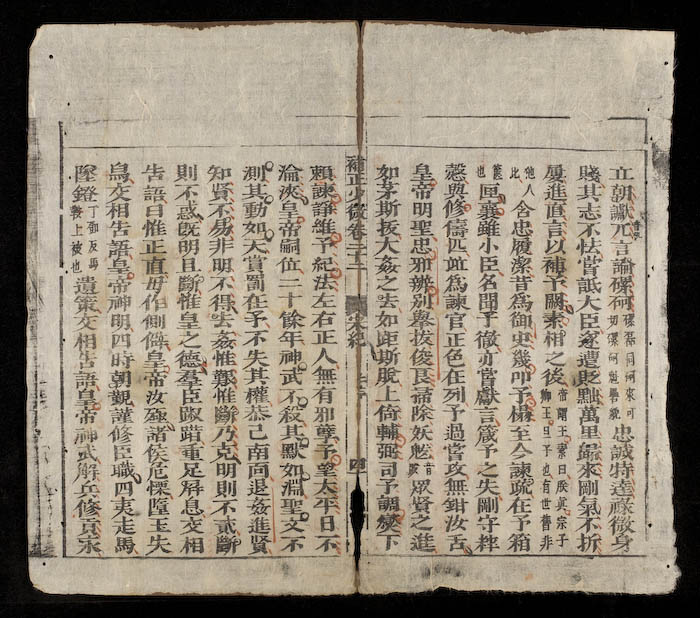 立朝讞兀言論磥砢忠誠特達祿微身
賤其志不怯嘗詆大臣遂遭貶黜萬里歸來剛氣不折
屢進直言以補予闕素相之後帝謂王素曰朕真宗子卿王旦子也有世舊非
他人比含忠履潔昔爲御史幾叩予榻至今諫疏在予箱
篋也匣襄雖小臣名聞予徹亦嘗獻言箴予之失剛守粹
慤與修儔匹並爲諫官正色在列予過嘗攻無鉗汝舌
皇帝明聖忠邪辨別舉拔俊良掃除妖魃音跋衆賢之進
如茅斯拔大姦之去如距斯脫上倚輔弼司予調燮下
補正少微卷二十二 宋紀 四
賴諫諍維予紀法左右正人無有邪孽予望太平日不
淪浹皇帝嗣位二十餘年神武不殺其默如淵聖文不
測其動如天賞罰在予不失其權恭己南向退姦進賢
知賢不易非明不得去姦惟艱惟斷乃克明則不貳斷
則不惑旣明且斷惟皇之德羣臣踧踖重足屛息交相
告語曰惟正直毋作側僻皇帝汝殛諸侯危慄墮玉失
舄交相告語皇帝神明四時朝覲謹修臣職四夷走馬
墜鐙丁鄧反馬鞍上被也遺策交相告語皇帝神武解兵修貢永